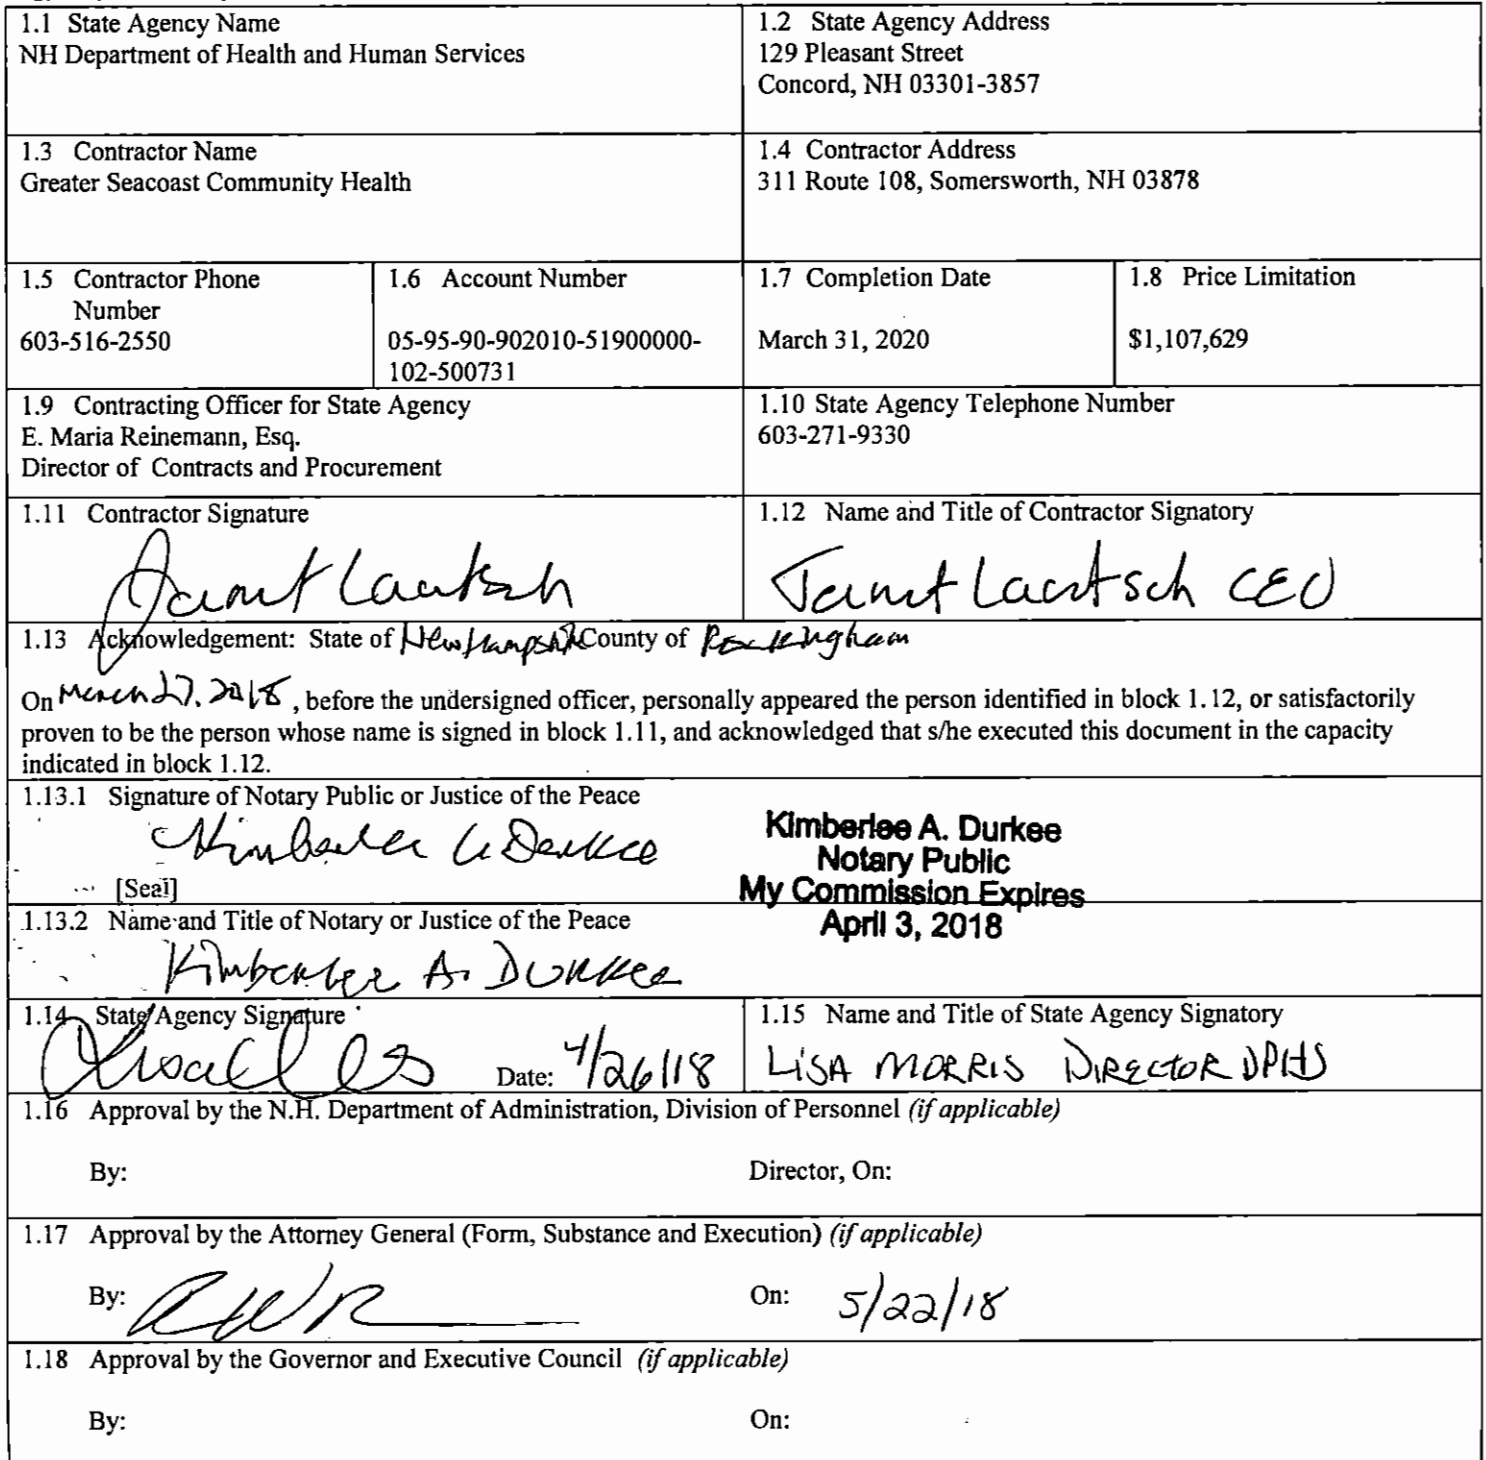 1.1 State Agency Name
NH Department of Health and Human Services
1.2 State Agency Address
129 Pleasant Street
Concord, NH 03301-3857
1.3 Contractor Name
Greater Seacoast Community Health
1.4 Contractor Address
311 Route 108, Somersworth, NH 03878
1.5 Contractor Phone
Number
603-516-2550
1.6 Account Number
05-95-90-902010-51900000-
102-500731
1.7 Completion Date
March 31, 2020
1.8 Price Limitation
$1,107,629
1.9 Contracting Officer for State Agency
E. Maria Reinemann, Esq.
Director of Contracts and Procurement
1.10 State Agency Telephone Number
603-271-9330
1.11 Contractor Signature
Janet Laatsch
1.12 Name and Title of Contractor Signatory
Janet Laatsch CEO
1.13 Acknowledgement: State of New Hampshire County of Rockingham
On March 27, 2018, before the undersigned officer, personally appeared the person identified in block 1.12, or satisfactorily
proven to be the person whose name is signed in block 1.11, and acknowledged that s/he executed this document in the capacity
indicated in block 1.12.
1.13.1 Signature of Notary Public or Justice of the Peace
Kimberlee A Durkee
[Seal]
Kimberlee A. Durkee
Notary Public
My Commission Expires
April 3, 2018
1.13.2 Name and Title of Notary or Justice of the Peace
Kimberlee A. Durkee
1.14 State Agency Signature
Date: 4/26/18
1.15 Name and Title of State Agency Signatory
LISA MORRIS DIRECTOR DPHS
1.16 Approval by the N.H. Department of Administration, Division of Personnel (if applicable)
By:
Director, On:
1.17 Approval by the Attorney General (Form, Substance and Execution) (if applicable)
By:
On: 5/22/18
1.18 Approval by the Governor and Executive Council (if applicable)
By:
On: